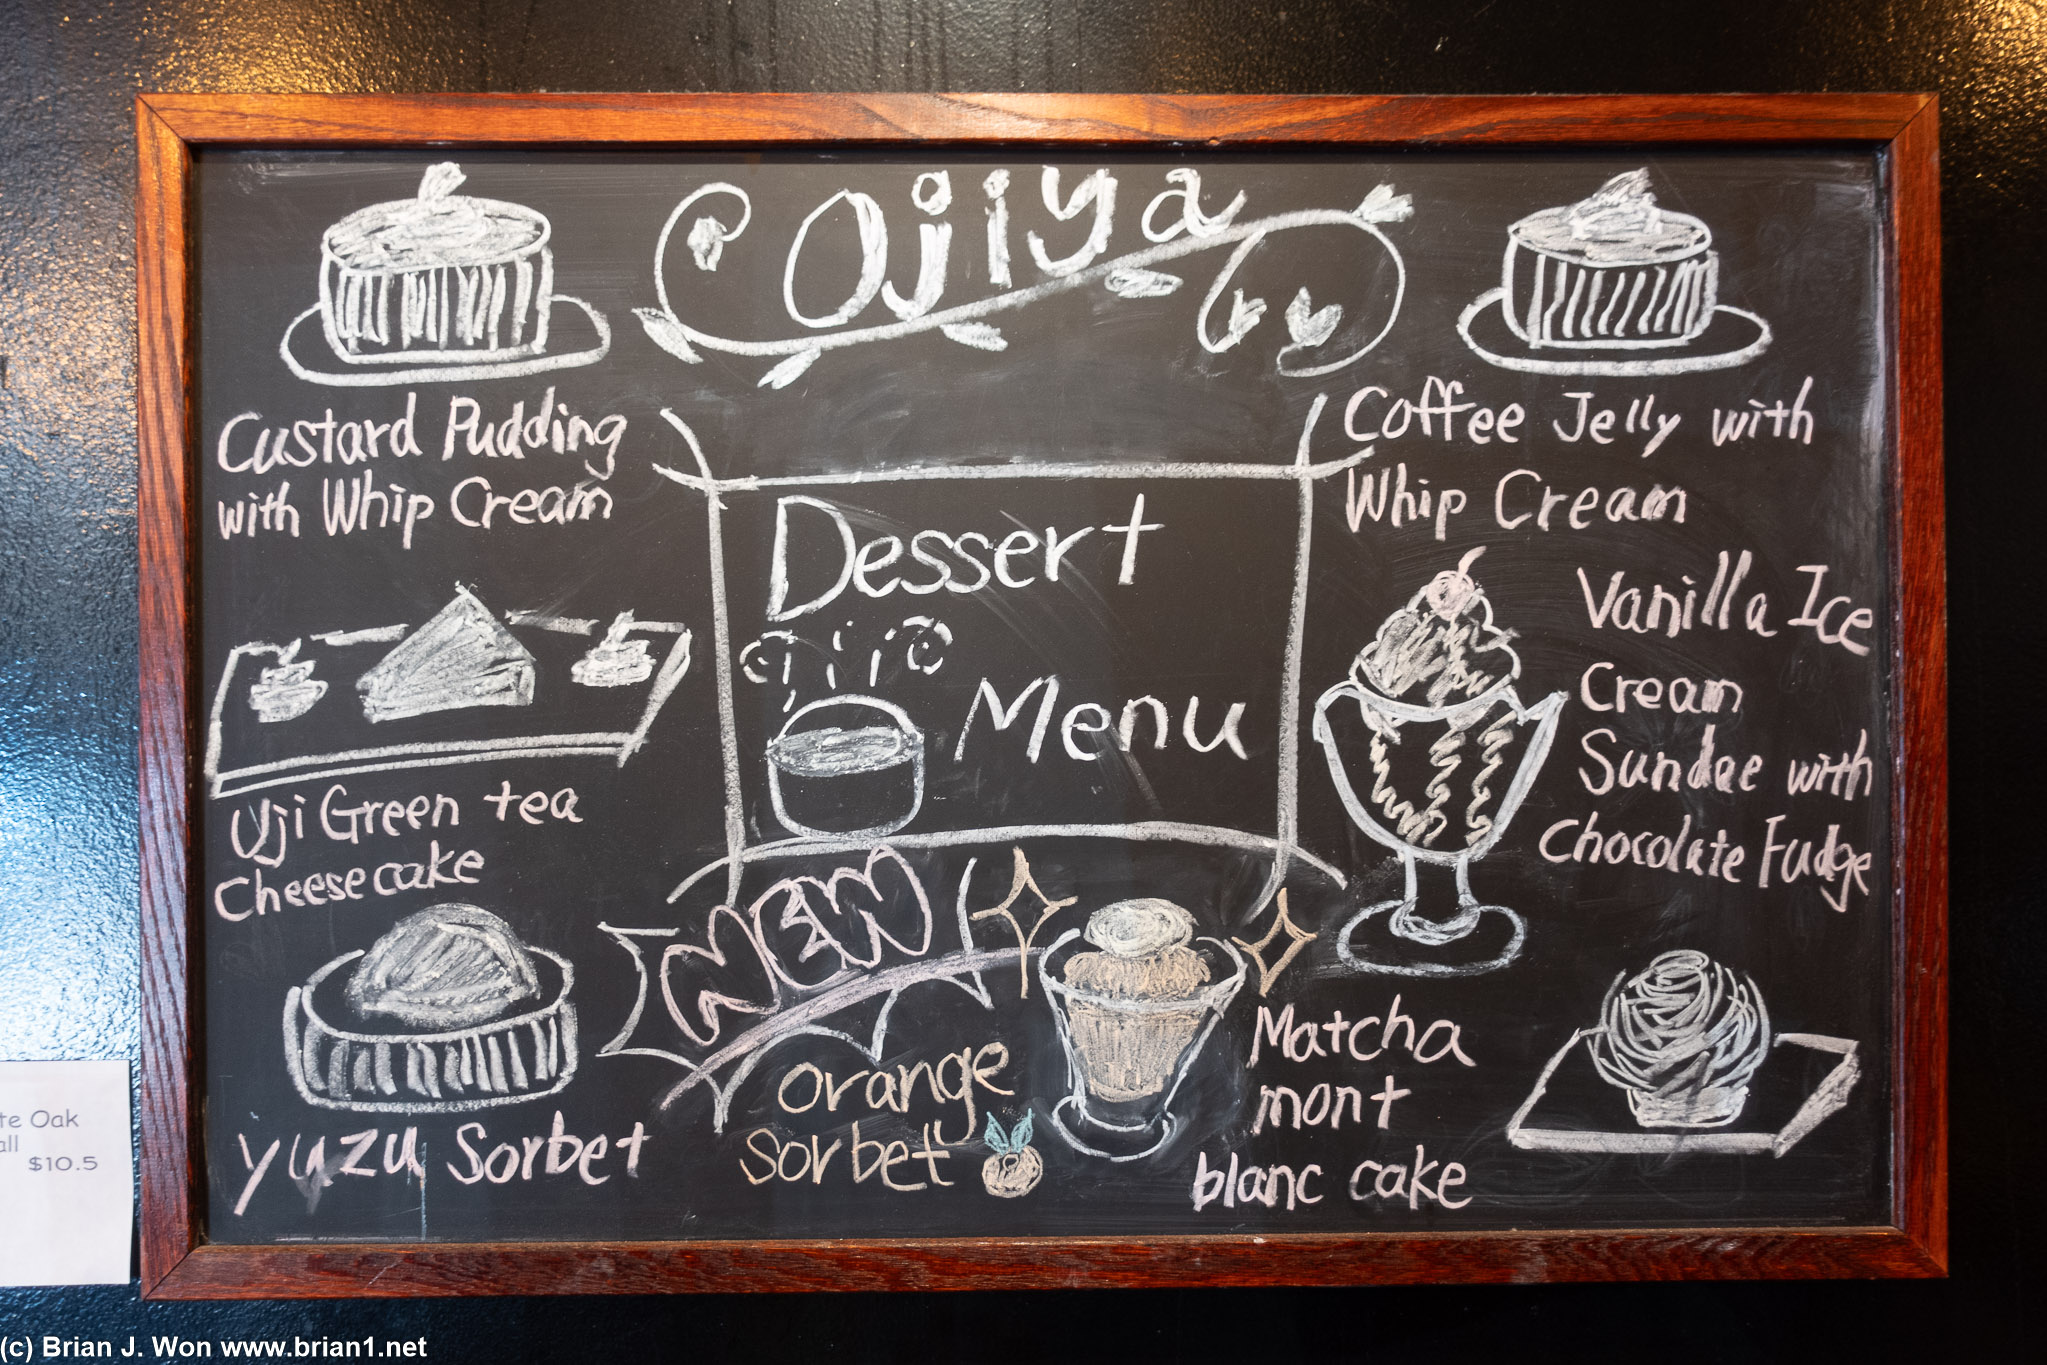 Ojiya
Custard Pudding
with Whip Cream
Coffee Jelly with
Whip Cream
Dessert
Menu
Uji Green tea
Cheesecake
Vanilla Ice
Cream
Sundae with
Chocolate Fudge
NEW
yuzu Sorbet
orange
sorbet
Matcha
mont
blanc cake
te Oak
all
$10.5
(c) Brian J. Won www.brian1.net